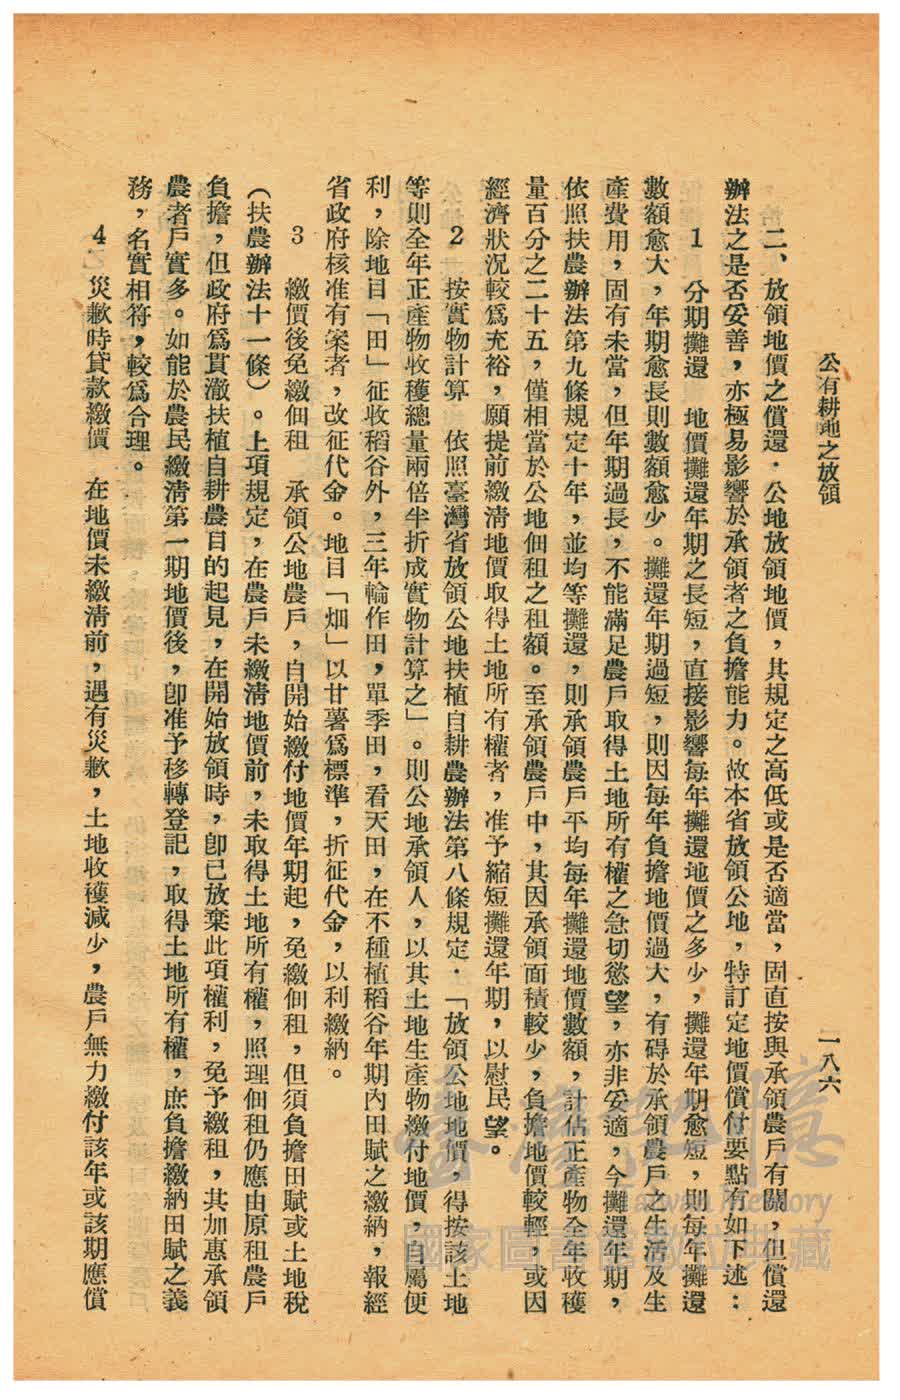 公有耕地之放領
一八六
二、放領地價之償還．公地放領地價，其規定之高低或是否適當，固直按與承領農戶有關，但償還
辦法之是否妥善，亦極易影響於承領者之負擔能力。故本省放領公地，特訂定地價償付要點有如下述：
1　分期攤還　地價攤還年期之長短，直接影響每年攤還地價之多少，攤還年期愈短，則每年攤還
數額愈大，年期愈長則數額愈少。攤還年期過短，則因每年負擔地價過大，有碍於承領農戶之生活及生
產費用，固有未當，但年期過長，不能滿足農戶取得土地所有權之急切慾望，亦非妥適，今攤還年期，
依照扶農辦法第九條規定十年，並均等攤還，則承領農戶平均每年攤還地價數額，計佔正產物全年收穫
量百分之二十五，僅相當於公地佃租之租額。至承領農戶中，其因承領面積較少，負擔地價較輕，或因
經濟狀況較爲充裕，願提前繳清地價取得土地所有權者，准予縮短攤還年期，以慰民望。
2　按實物計算　依照臺灣省放領公地扶植自耕農辦法第八條規定．「放領公地地價，得按該土地
等則全年正產物收穫總量兩倍半折成實物計算之」。則公地承領人，以其土地生產物繳付地價，自屬便
利，除地目「田」征收稻谷外，三年輪作田，單季田，看天田，在不種植稻谷年期內田賦之繳納，報經
省政府核准有案者，改征代金。地目「畑」以甘薯爲標準，折征代金，以利繳納。
3　繳價後免繳佃租　承領公地農戶，自開始繳付地價年期起，免繳佃租，但須負擔田賦或土地稅
（扶農辦法十一條）。上項規定，在農戶未繳清地價前，未取得土地所有權，照理佃租仍應由原租農戶
負擔，但政府爲貫澈扶植自耕農目的起見，在開始放領時，卽已放棄此項權利，免予繳租，其加惠承領
農者戶實多。如能於農民繳清第一期地價後，卽准予移轉登記，取得土地所有權，庶負擔繳納田賦之義
務，名實相符，較爲合理。
4　災歉時貸款繳價　在地價未繳清前，遇有災歉，土地收穫減少，農戶無力繳付該年或該期應償
臺灣記憶
Taiwan Memory
國家圖書館數位典藏